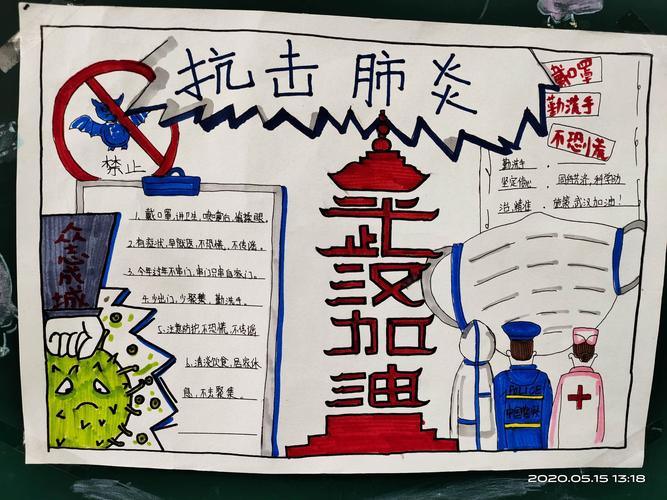 抗击肺炎
戴口罩
勤洗手
不恐慌
禁止
勤洗手，
坚定信心、同舟共济，科学防
治，精准施策，武汉加油！
众志成城
1、戴口罩，讲卫生，
2、有症状，早就医，不恐慌，不传谣。
3、今年过年不串门，串门只串自家门。
4、少出门，少聚集，勤洗手。
5、注意防护，不恐慌，不传谣
6、清淡饮食，
息，不去聚集。
武汉加油
POLICE
中国警察
2020.05.15 13:18